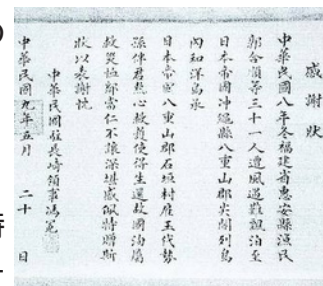 感謝狀
中華民國八年冬福建省惠安縣漁民
郭合順等三十一人遭風遇難飄泊至
日本帝國沖繩縣八重山郡尖閣列島
內和洋島承
日本帝國八重山郡石垣村雇玉代勢
孫伴君熱心救護使得生還故國洵屬
救災恤鄰當仁不讓深堪感佩特贈斯
狀以表謝忱
中華民國駐長崎領事馮冕
中華民國九年五月 二十 日
の
時